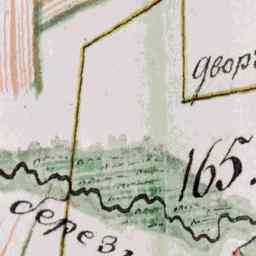 дворъ
165.
берез